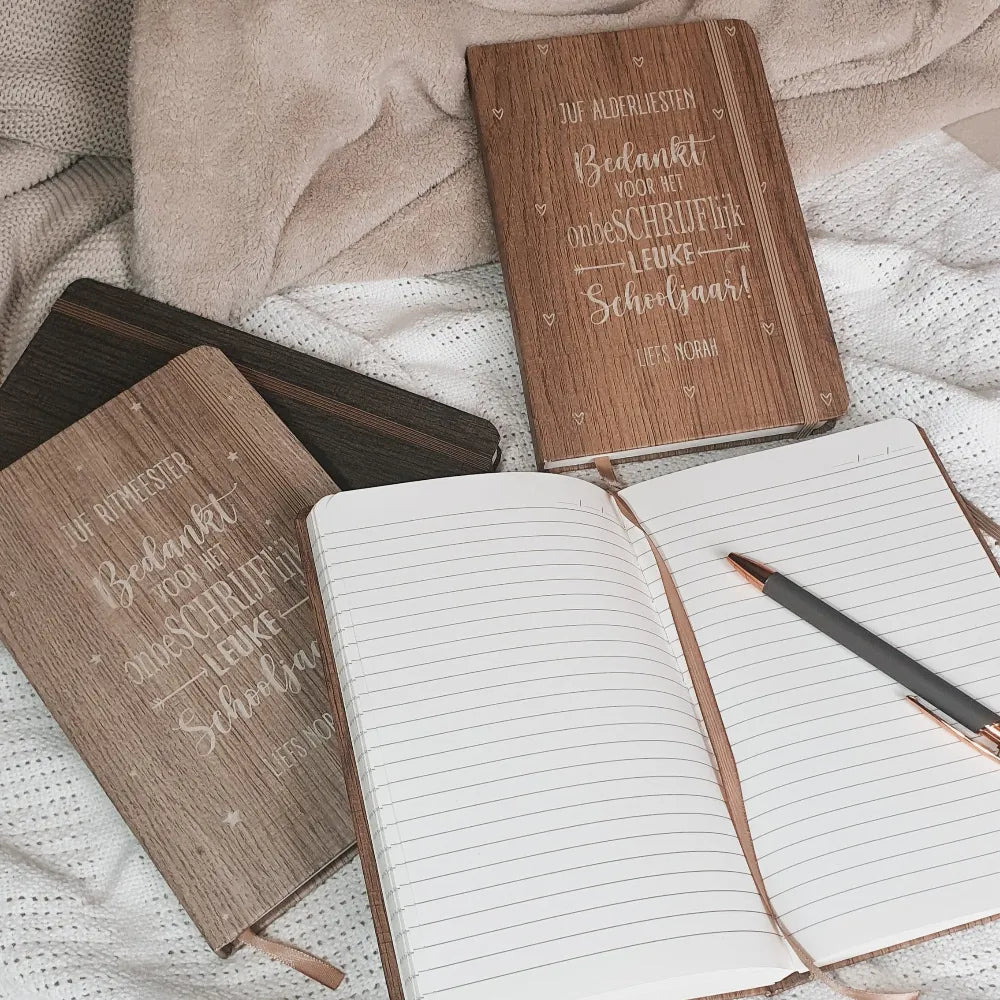 JUF ALDERLIESTEN
Bedankt
VOOR HET
onbeSCHRIJFlijk
LEUKE
Schooljaar!
LIEFS NORAH
JUF RITMEESTER
Bedankt
VOOR HET
onbeSCHRIJFlij
LEUKE
Schooljaa
LIEFS NOR